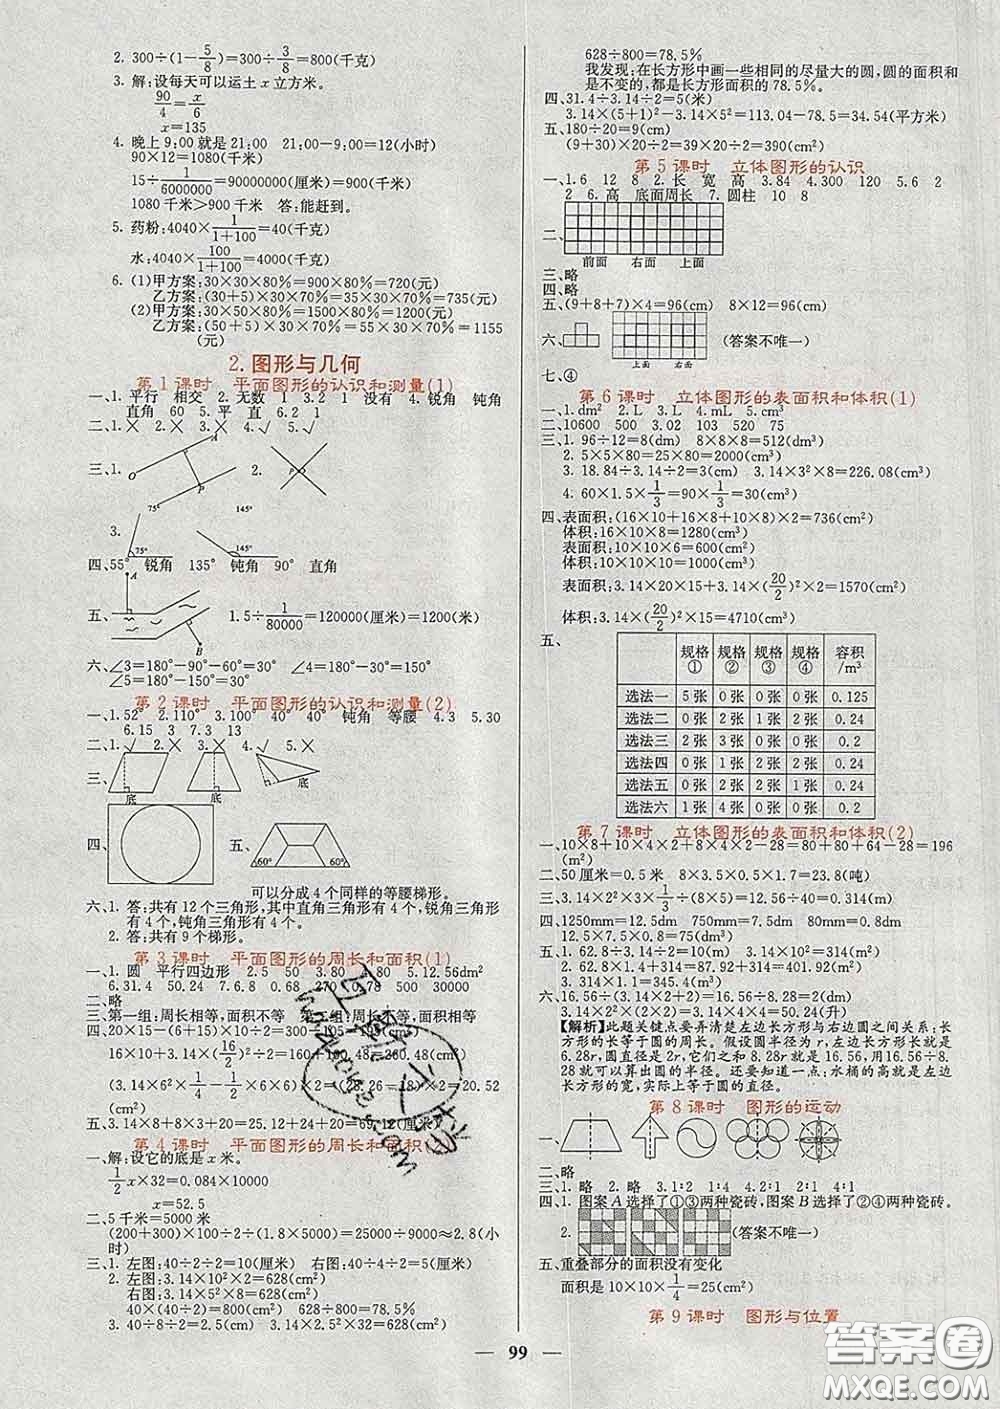 2. 300÷(1-5/8)=300÷3/8=800(千克)
3. 解:设每天可以运土 x 立方米.
90/4=x/6
x=135
4. 晚上 9:00 就是 21:00　21:00-9:00=12(小时)
90×12=1080(千米)
15÷1/6000000=90000000(厘米)=900(千米)
1080 千米>900 千米　答:能赶到.
5. 药粉:4040×1/(1+100)=40(千克)
水:4040×100/(1+100)=4000(千克)
6. (1)甲方案:30×30×80%=900×80%=720(元)
乙方案:(30+5)×30×70%=35×30×70%=735(元)
(2)甲方案:30×50×80%=1500×80%=1200(元)
乙方案:(50+5)×30×70%=55×30×70%=1155
(元)
2. 图形与几何
第 1 课时　平面图形的认识和测量(1)
一、1. 平行　相交　2. 无数　1　3. 2　1　没有　4. 锐角　钝角
直角　60　5. 平　直　6. 2　1
二、1. ×　2. ×　3. ×　4. √　5. √
三、1.　O　A　P　2.　P
75°　145°
3.　75°　145°
四、55°　锐角　135°　钝角　90°　直角
A
五、　1.5÷1/80000=120000(厘米)=1200(米)
B
六、∠3=180°-90°-60°=30°　∠4=180°-30°=150°
∠5=180°-150°=30°
第 2 课时　平面图形的认识和测量(2)
一、1. 52°　2. 110°　3. 100°　40°　40°　钝角　等腰　4. 3　5. 30
6. 15　3　7. 3　13
二、1. √　2. ×　3. ×　4. √　5. ×
三、　底　底　底
四、　五、　60°　60°
可以分成 4 个同样的等腰梯形.
六、1. 答:共有 12 个三角形,其中直角三角形有 4 个,锐角三角形
有 4 个,钝角三角形有 4 个.
2. 答:共有 9 个梯形.
第 3 课时　平面图形的周长和面积(1)
一、1. 圆　平行四边形　2. 5　50　3. 80　4. 80　5. 12.56dm²
6. 31.4　50.24　7. 6.8　0.68　270　0.78　500　30000
二、略
三、第一组:周长相等,面积不等　第二组:周长不等,面积相等
四、20×15-(6+15)×10÷2=300-105=195(cm²)
16×10+3.14×(16/2)²÷2=160+100.48=260.48(cm²)
(3.14×6²×1/4-1/2×6×6)×2=(28.26-18)×2=20.52
(cm²)
五、3.14×8+8×5+4=25.12+24+20=69.12(厘米)
第 4 课时　平面图形的周长和面积
一、解:设它的底是 x 米.
1/2x×32=0.084×10000
x=52.5
二、5 千米=5000 米
(200+300)×100÷2÷(1.8×5000)=25000÷9000≈2.8(小
时)
三、1. 左图:40÷2÷2=10(厘米)　右图:40÷4÷2=5(厘米)
2. 左图:3.14×10²×2=628(cm²)
右图:3.14×5²×8=628(cm²)
40×(40÷2)=800(cm²)　628÷800=78.5%
3. 40÷8÷2=2.5(cm)　3.14×2.5²×32=628(cm²)
628÷800=78.5%
我发现:在长方形中画一些相同的尽量大的圆,圆的面积和
是不变的,都是长方形面积的 78.5%.
四、31.4÷3.14÷2=5(米)
3.14×(5+1)²-3.14×5²=113.04-78.5=34.54(平方米)
五、180÷20=9(cm)
(9+30)×20÷2=39×20÷2=390(cm²)
第 5 课时　立体图形的认识
一、1. 6　12　8　2. 长　宽　高　3. 84　4. 300　120　5. 6　2
2　6. 高　底面周长　7. 圆柱　10　8
二、
前面　右面　上面
三、略
四、略
五、(9+8+7)×4=96(cm)　8×12=96(cm)
六、　(答案不唯一)
上面　右面
七、④
第 6 课时　立体图形的表面积和体积(1)
一、1. dm²　2. L　3. L　4. mL　5. cm³
二、10600　500　3.02　103　520　75
三、1. 96÷12=8(dm)　8×8×8=512(dm³)
2. 5×5×80=25×80=2000(cm³)
3. 18.84÷3.14÷2=3(cm)　3.14×3²×8=226.08(cm³)
4. 60×1.5×1/3=90×1/3=30(cm³)
四、表面积:(16×10+16×8+10×8)×2=736(cm²)
体积:16×10×8=1280(cm³)
表面积:10×10×6=600(cm²)
体积:10×10×10=1000(cm³)
表面积:3.14×20×15+3.14×(20/2)²×2=1570(cm²)
体积:3.14×(20/2)²×15=4710(cm³)
五、
规格①　规格②　规格③　规格④　容积/m³
选法一　5 张　0 张　0 张　0 张　0.125
选法二　0 张　2 张　1 张　2 张　0.24
选法三　2 张　3 张　0 张　0 张　0.2
选法四　0 张　1 张　2 张　2 张　0.24
选法五　0 张　2 张　2 张　1 张　0.24
选法六　1 张　4 张　0 张　0 张　0.2
第 7 课时　立体图形的表面积和体积(2)
一、10×8+10×4×2+8×4×2-28=80+80+64-28=196
(m²)
二、50 厘米=0.5 米　8×3.5×0.5×1.7=23.8(吨)
三、3.14×2²×3×1/3÷(5×8)=12.56÷40=0.314(m)
四、1250mm=12.5dm　750mm=7.5dm　80mm=0.8dm
12.5×7.5×0.8=75(dm³)
五、1. 62.8÷3.14÷2=10(m)　3.14×10²=314(m²)
2. 62.8×0.5+3.14×10²=31.4+314=345.4(m²)
3. 314×1.1=345.4(m³)
六、16.56÷(3.14×2+2)=16.56÷8.28=2(dm)
3.14×2²×(2×2)=3.14×16=50.24(升)
【解析】此题关键点要弄清楚左边长方形与右边圆之间关系:长
方形的长等于圆的周长. 假设圆半径为 r,左边长方形长就是
6.28r,圆直径是 2r,它们之和 8.28r 就是 16.56,用 16.56÷8.
28 就可以算出圆的半径. 还要知道一点:水桶的高就是左边
长方形的宽,实际上等于圆的直径.
第 8 课时　图形的运动
一、
二、略
三、1. 略　2. 略　3. 1∶2　1∶4　4. 2∶1　4∶1
四、1. 图案 A 选择了①③两种瓷砖,图案 B 选择了②④两种瓷砖.
2.　(答案不唯一)
五、重叠部分的面积没有变化
面积是 10×10×1/4=25(cm²)
第 9 课时　图形与位置
— 99 —
答案圈
MXQE.COM